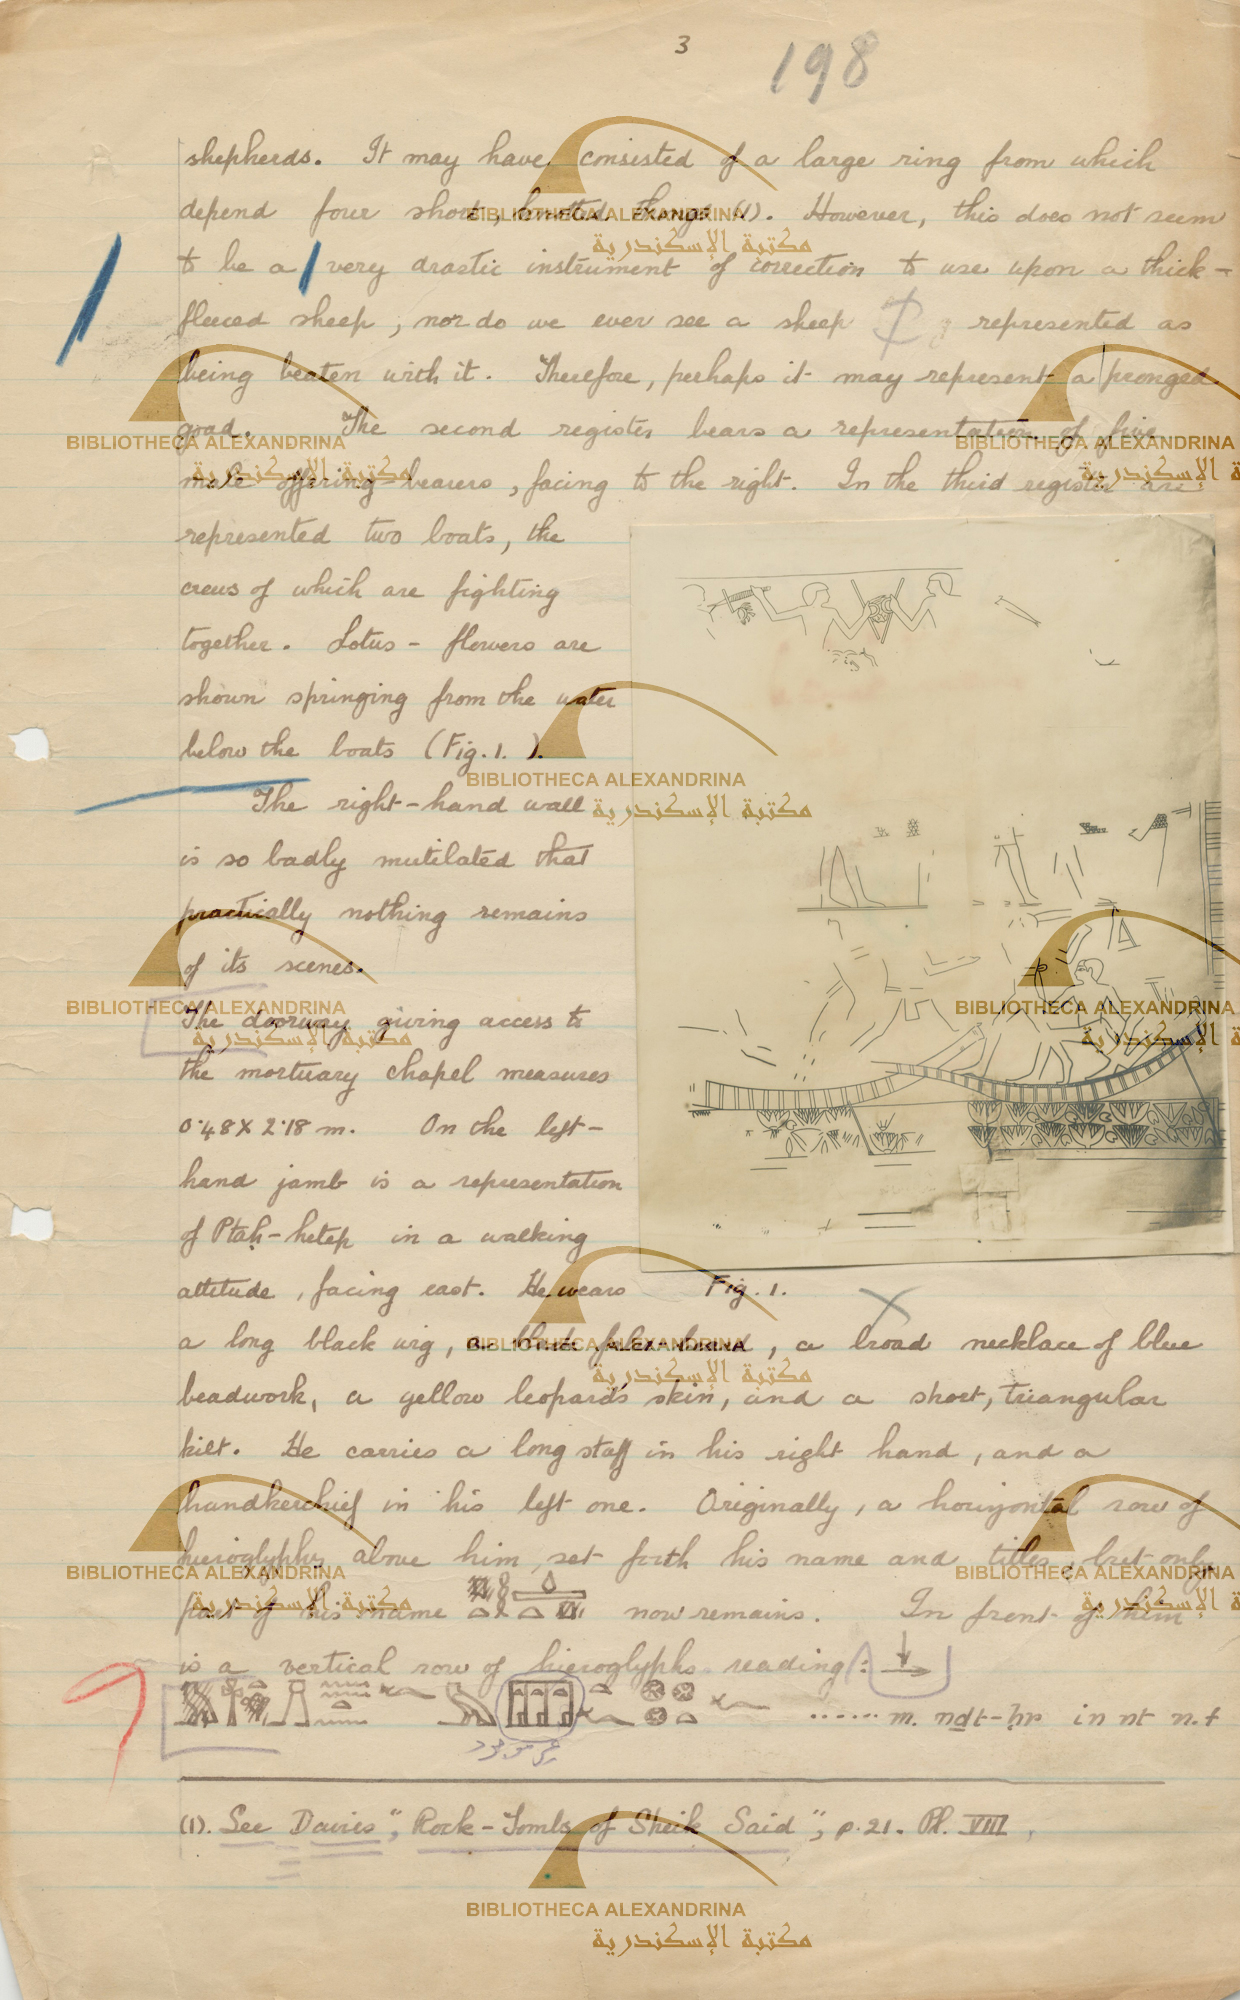 3
198
shepherds. It may have consisted of a large ring from which
depend four short, knotted thongs (1). However, this does not seem
to be a very drastic instrument of correction to use upon a thick-
fleeced sheep, nor do we ever see a sheep represented as
being beaten with it. Therefore, perhaps it may represent a pronged
goad. The second register bears a representation of five
male offering-bearers, facing to the right. In the third register are
represented two boats, the
crews of which are fighting
together. Lotus-flowers are
shown springing from the water
below the boats (Fig. 1. ).
The right-hand wall
is so badly mutilated that
practically nothing remains
of its scenes.
The doorway giving access to
the mortuary chapel measures
0·48 X 2·18 m. On the left-
hand jamb is a representation
of Ptaḥ-hetep in a walking
attitude, facing east. He wears
Fig. 1.
a long black wig, a, a broad necklace of blue
beadwork, a yellow leopard's skin, and a short, triangular
kilt. He carries a long staff in his right hand, and a
handkerchief in his left one. Originally, a horizontal row of
hieroglyphs above him set forth his name and titles, but only
part of his name now remains. In front of him
is a vertical row of hieroglyphs reading :
...... m. nḏt-ḥr in nt n.f
(1). See Davies, "Rock-Tombs of Sheik Said", p. 21. Pl. VIII
BIBLIOTHECA ALEXANDRINA
مكتبة الإسكندرية